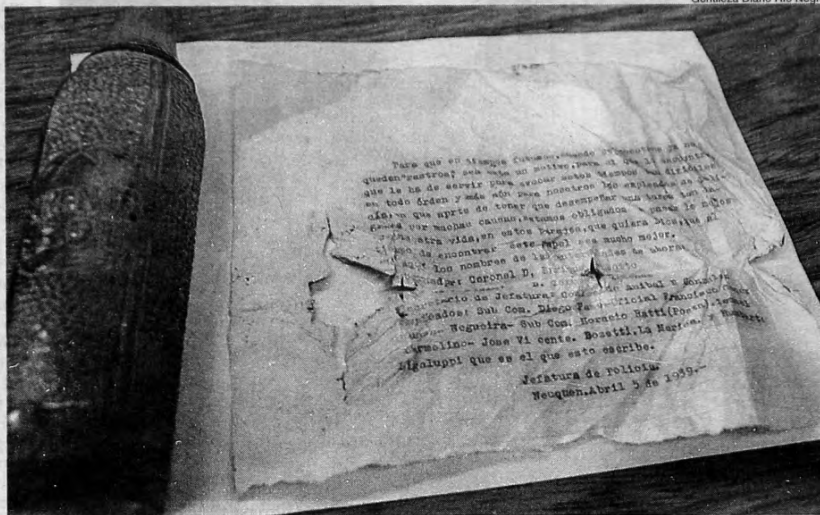 Gentileza Diario Río Negro
Para que en tiempos futuros, cuando ya no
queden "rastros", sea esta un motivo, para el que la encuentre,
que le ha de servir para evocar estos tiempos tan difíciles
en todo órden y más aún para nosotros los empleados de Poli-
cía, en que aprte de tener que desempeñar una tarea tan in-
por muchas causas, estamos obligados a pasar lo mejor
de nuestra vida, en estos parajes, que quiera Dios, que al
tiempo de encontrar este papel sea mucho mejor.
los nombres de las autoridades de ahora:
Gobernador: Coronel D. Enrique
Secretario de Jefatura: Anibal T. Gonzalez
Empleados: Sub Com. Diego Oficial Francisco
Nogueira- Sub Com. Horacio Ratti (Poeta),
Carmelino- Jose Vi cente. Bozetti. La Humberto
Bigaluppi que es el que esto escribe.
Jefatura de Policia.
Neuquen, Abril 5 de 1939.-